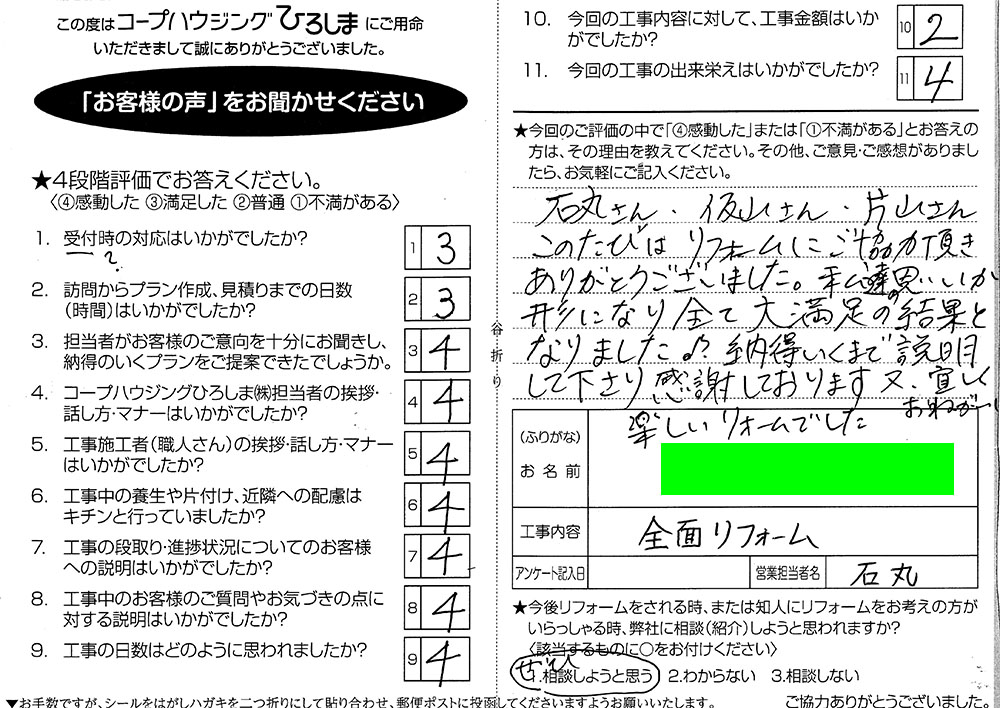 この度はコープハウジングひろしまにご用命
いただきまして誠にありがとうございました。
「お客様の声」をお聞かせください
★4段階評価でお答えください。
〈④感動した ③満足した ②普通 ①不満がある〉
1. 受付時の対応はいかがでしたか? 1 3
?
2. 訪問からプラン作成、見積りまでの日数
(時間)はいかがでしたか? 2 3
3. 担当者がお客様のご意向を十分にお聞きし、
納得のいくプランをご提案できたでしょうか。 3 4
4. コープハウジングひろしま㈱担当者の挨拶・
話し方・マナーはいかがでしたか? 4 4
5. 工事施工者(職人さん)の挨拶・話し方・マナー
はいかがでしたか? 5 4
6. 工事中の養生や片付け、近隣への配慮は
キチンと行っていましたか? 6 4
7. 工事の段取り・進捗状況についてのお客様
への説明はいかがでしたか? 7 4
8. 工事中のお客様のご質問やお気づきの点に
対する説明はいかがでしたか? 8 4
9. 工事の日数はどのように思われましたか? 9 4
谷折り
10. 今回の工事内容に対して、工事金額はいか
がでしたか? 10 2
11. 今回の工事の出来栄えはいかがでしたか? 11 4
★今回のご評価の中で「④感動した」または「①不満がある」とお答えの
方は、その理由を教えてください。その他、ご意見・ご感想がありまし
たら、お気軽にご記入ください。
石丸さん・仮山さん・片山さん
このたびは リフォームにご協力頂き
ありがとうございました。私達の思いいが
形になり全て大満足の結果と
なりました♪? 納得いくまで説明
して下さり感謝しております 又、宜しく
おねがーい
楽しいリォームでした
(ふりがな)
お名前
工事内容 全面リフォーム
アンケート記入日 営業担当者名 石丸
★今後リフォームをされる時、または知人にリフォームをお考えの方が
いらっしゃる時、弊社に相談(紹介)しようと思われますか?
〈該当するものに○をお付けください〉
ぜひ
1.相談しようと思う 2.わからない 3.相談しない
▼お手数ですが、シールをはがしハガキを二つ折りにして貼り合わせ、郵便ポストに投函してくださいますようお願いいたします。 ご協力ありがとうございました。